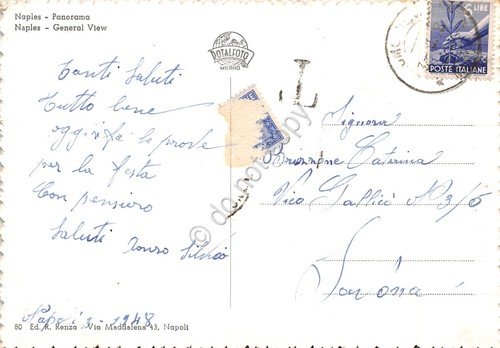 Naples - Panorama
Naples - General View
DOTALFOTO
MILANO
5 LIRE
POSTE ITALIANE
T
Tanti Saluti
Tutto bene
oggi si fa le prove
per la festa
Con pensiero
Saluti Silvio
Signora
Bruzzone Caterina
Vico Gallici N 3/6
Savona
Napoli 1948
80 Ed. R. Renza - Via Maddalena 43, Napoli
© do not copy